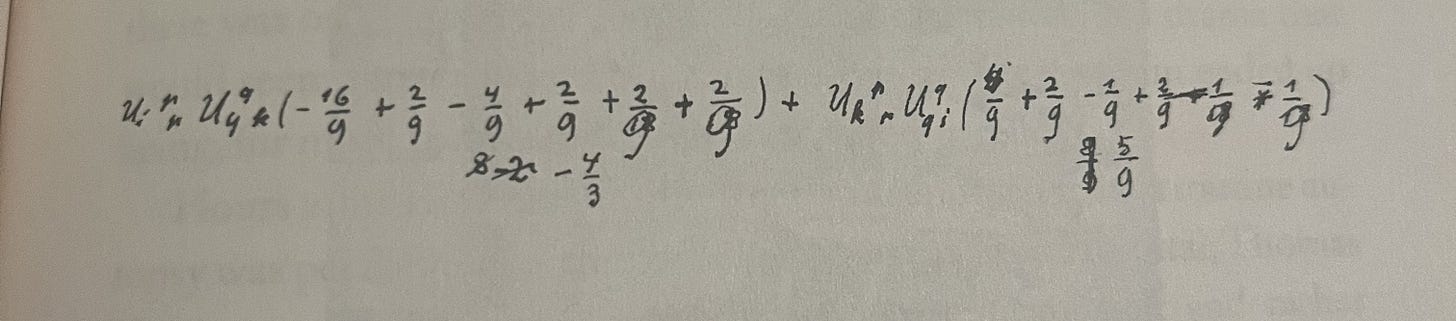 U_i^r_r U_q^q_k (- 16/9 + 2/9 - 4/9 + 2/9 + 2/9 + 2/9) + U_k^r_r U_q^q_i (4/9 + 2/9 - 1/9 + 2/9 - 1/9 - 1/9)
- 4/3 5/9